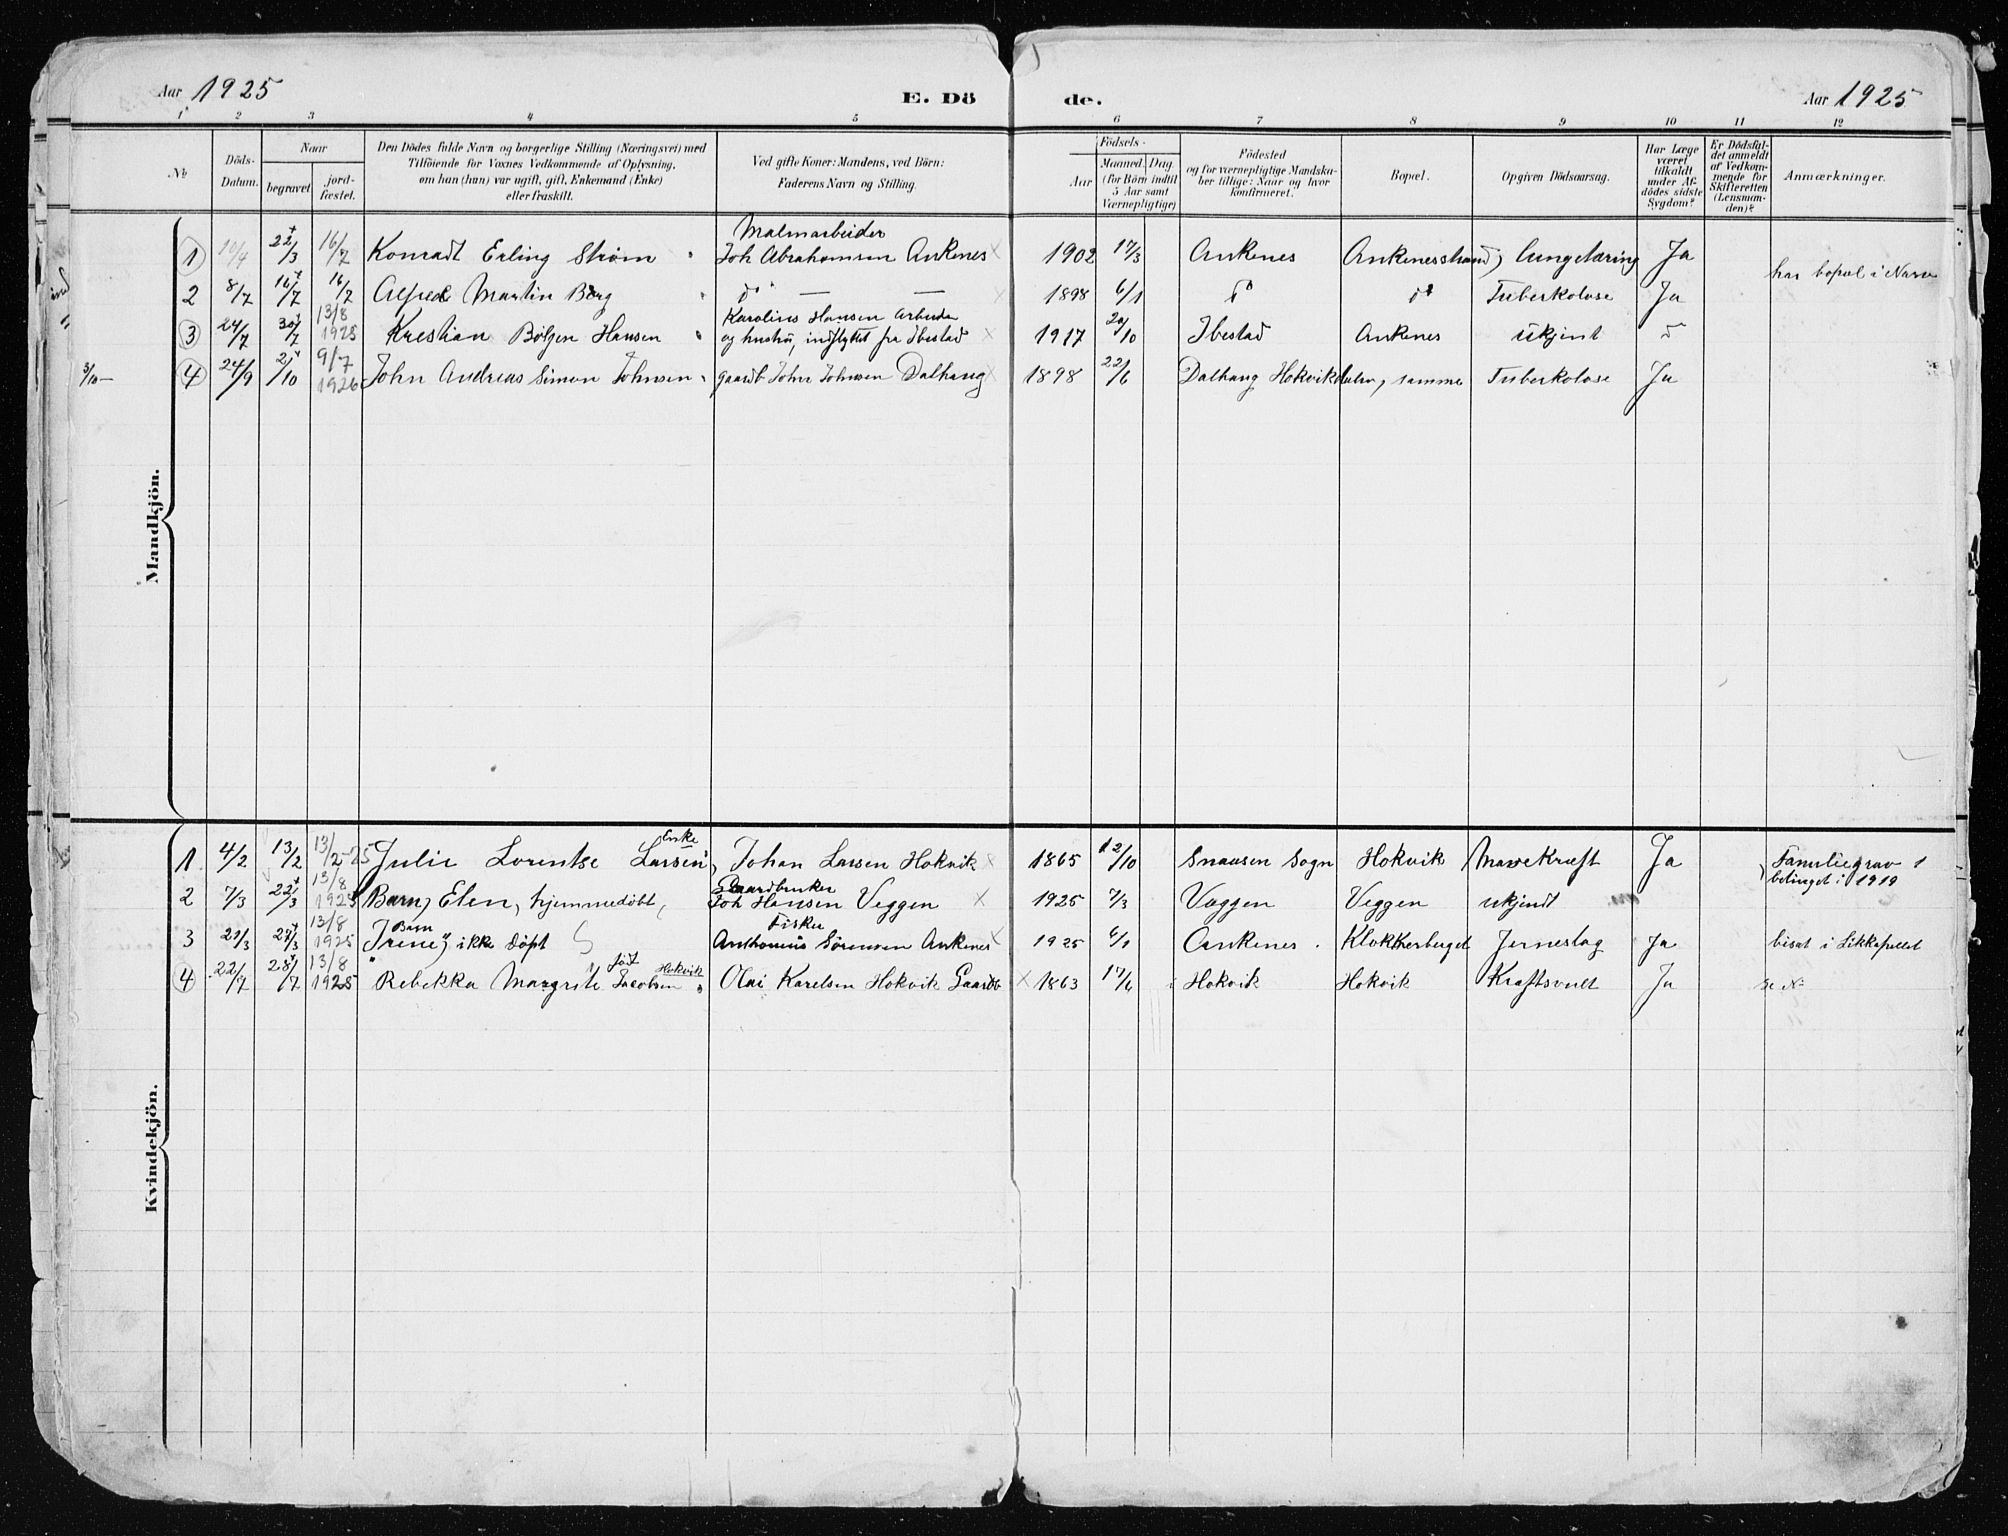 Aar 1925
E. Dö de.
Aar 1925
1 2 3 4 5 6 7 8 9 10 11 12
No
Döds-Datum.
Naar
begravet
jord-fæstet.
Den Dödes fulde Navn og borgerlige Stilling (Næringsvei) med
Tilföiende for Voxnes Vedkommende af Oplysning,
om han (hun) var ugift, gift, Enkemand (Enke)
eller fraskilt.
Ved gifte Koner: Mandens, ved Börn:
Faderens Navn og Stilling.
Födsels-
Aar
Maaned. Dag.
(for Börn indtil
5 Aar samt
Værnepligtige)
Födested
og for værnepligtige Mandska-
ber tillige: Naar og hvor
konfirmeret.
Bopæl.
Opgiven Dödsaarsag.
Har Læge
været
tilkaldt
under Af-
dödes sidste
Sygdom?
Er Dödsfal-
det anmeldt
af Vedkom-
mende for
Skifteretten
(Lensman-
den)?
Anmærkninger.
Mandkjön.
Malmarbeider
1 22/3 16/7 Konradt Erling Strøm Joh Abrahamsen Ankenes 1902 17/3 Ankenes Ankenesstrand, Lungetæring Ja
har bopæl i Narv
2 8/7 16/7 16/7 Alfred Martin Berg do — — 1898 6/1 do do Tuberkolose Ja
13/8 Karolius Hansen Arbeider
3 24/7 30/7 1925 Krestian Bølgen Hansen og hustru, indflyttet fra Ibestad 1917 20/10 Ibestad Ankenes Ukjint
9/7
3/10 — 4 24/9 2/10 1926 John Andreas Simon Johnsen gaardb John Johnsen Dalhaug 1898 22/6 Dalhaug Hokvik samme Tuberkolose Ja
Kvindekjön.
Enke
1. 4/2 13/2 13/2-25 Julie Lorentse Larsen, Johan Larsen Hokvik 1865 12/10 Snaasen Sogn Hokvik Mavekræft Ja Familiegrav
betinget i 1919
13/8 Gaardbruker
2 7/3 22/3 1925 Barn, Elen, hjemmedøbt, Joh Hansen Veggen 1925 7/3 Væggen Veggen Ukjendt
13/8 Barn Fisker
3 1925 Irene, ikke døpt Anthonius Sörensen Ankenes 1925 Ankenes. Klokkerberget Jerneslag Ja bisat i Likkapellet
13/8 født Hokvik
4 22/7 28/7 1925 Rebekka Margrite Jacobsen Olai Karelsen Hokvik Gaardb 1863 17/6 Hokvik Hokvik Kraftsvult Ja se No